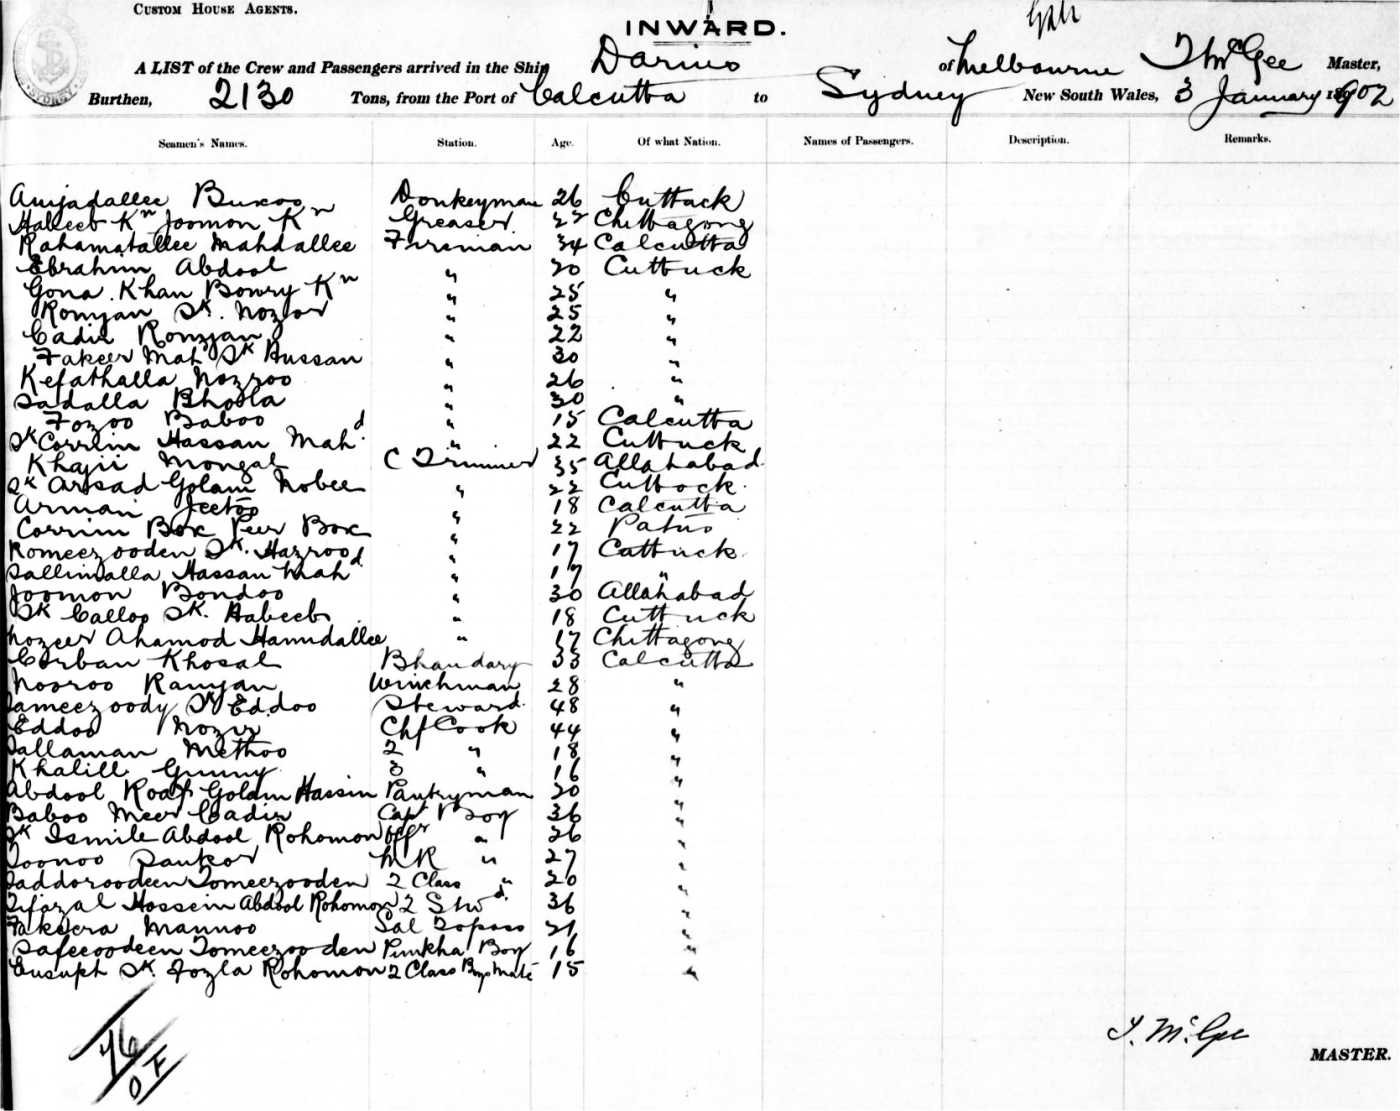 CUSTOM HOUSE AGENTS.
INWARD.
A LIST of the Crew and Passengers arrived in the Ship Darius of Melbourne T McGee Master,
Burthen, 2130 Tons, from the Port of Calcutta to Sydney New South Wales, 3 January 1902
Seamen's Names. Station. Age. Of what Nation. Names of Passengers. Description. Remarks.
Amjadallee Buxoo Donkeyman 26 Cuttack
Habeeb Kn Joomon Kn Greaser 22 Chittagong
Rahamatallee Mahdallee Fireman 34 Calcutta
Ebrahim Abdool " 20 Cuttuck
Gona Khan Bowry Kn " 25 "
Romjan Sk. Nozlor " 25 "
Cadir Romjan " 22 "
Fakeer Mah Sk Hussan " 30 "
Kefathalla Nozroo " 26 "
Sadalla Bhoola " 30 "
Fozoo Baboo " 15 Calcutta
Sk Corrim Hassan Mahd " 22 Cuttuck
Khajii Mongal C Trimmer 35 Allahabad
Sk Arsad Golam Nobee " 22 Cuttock
Arman Jeetoo " 18 Calcutta
Corrim Box Peer Box " 22 Patno
Romeezooden Sk. Hazroo " 17 Cattuck
Sallimalla Hassan Mahd " 17 "
Joomon Bondoo " 30 Allahabad
Sk Calloo Sk. Habeeb " 18 Cuttuck
Nozeer Ahamod Hamidallee " 17 Chittagong
Corban Khosal Bhandary 33 Calcutta
Nooroo Ramjan Winchman 28 "
Sameezoody Sk Eddoo Steward 48 "
Eddoo Nozir Chf Cook 44 "
Sallaman Methoo 2 " 18 "
Khalill Gunny 3 " 16 "
Abdool Roaf Golam Hassin Pantryman 20 "
Baboo Meer Cadir Capt Boy 36 "
Sk Ismile Abdool Rohomon Offr " 26 "
Toonoo Sankor M R " 27 "
Saddoroodeen Tomeezooden 2 Class " 20 "
Tifazal Hossein Abdool Rohomon 2 Stwd. 36 "
Fakeera Mannoo Sal Topass 21 "
Safeeoodeen Tomeezooden Punkha Boy 16 "
Eusuph Sk Fozla Rohomon 2 Class Boys Mate 15 "
T. McGee
MASTER.
76
O F